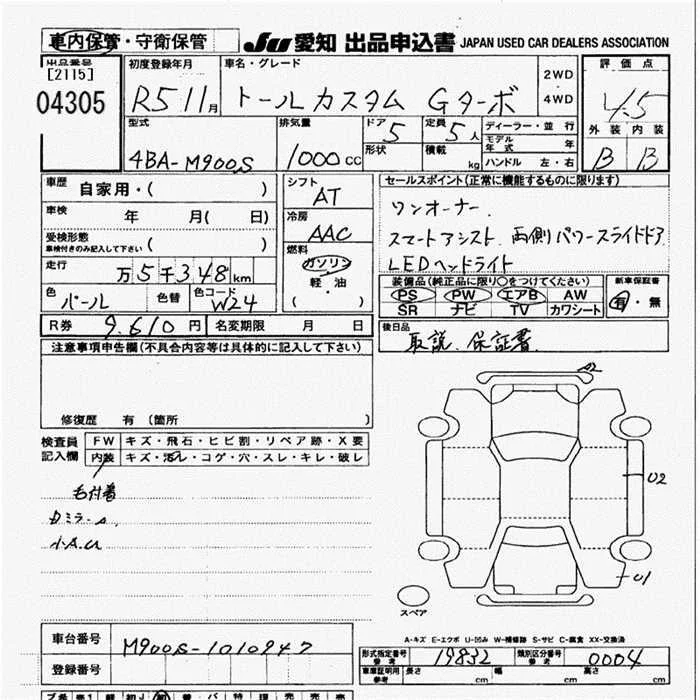 車内保管・守衛保管 JU 愛知 出品申込書 JAPAN USED CAR DEALERS ASSOCIATION
出品番号 [2115] 04305
初度登録年月 R5 11月
車名・グレード トールカスタム Gターボ
2WD ・ 4WD
評価点 4.5
外装 内装 B B
型式 4BA-M900S
排気量 1000 CC
ドア 5 形状
定員 5人 積載 kg
ディーラー・並行
モデル年式 年
ハンドル 左・右
車歴 自家用・( )
車検 年 月( 日)
受検形態 車検付きのみ記入して下さい ( )
走行 万5千348km
色 パール 色替 色コード W24
シフト AT
冷房 AAC
燃料 ガソリン 軽・油 ( )
セールスポイント(正常に機能するものに限ります)
ワンオーナー.
スマートアシスト. 両側パワースライドドア
LEDヘッドライト
装備品(純正品に限り○をつけてください)
PS PW エアB AW
SR ナビ TV カワシート
新車保証書 有・無
R券 9,610円 名変期限 月 日
後日品 取説. 保証書.
注意事項申告欄(不具合内容等は具体的に記入して下さい)
修復歴 有 (箇所 )
検査員記入欄
FW キズ・飛石・ヒビ割・リペア跡・X要
内装 キズ・汚レ・コゲ・穴・スレ・キレ・破レ
毛付着
小A.U
02
01
スペア
A-キズ E-エクボ U-凹み W-補修跡 S-サビ C-腐食 XX-交換済
車台番号 M900S-1010947
登録番号
形式指定番号 参考 19832 類別区分番号 参考 0004
車庫証明用 参考 長さ cm 幅 cm 高さ cm